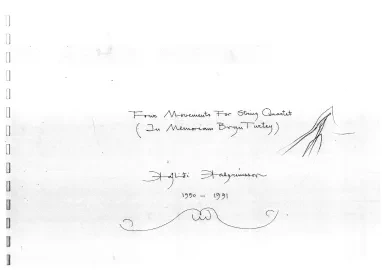 Four Movements For String Quartet
(In Memoriam Bryn Turley)
Hafliði Hallgrímsson
1990 – 1991